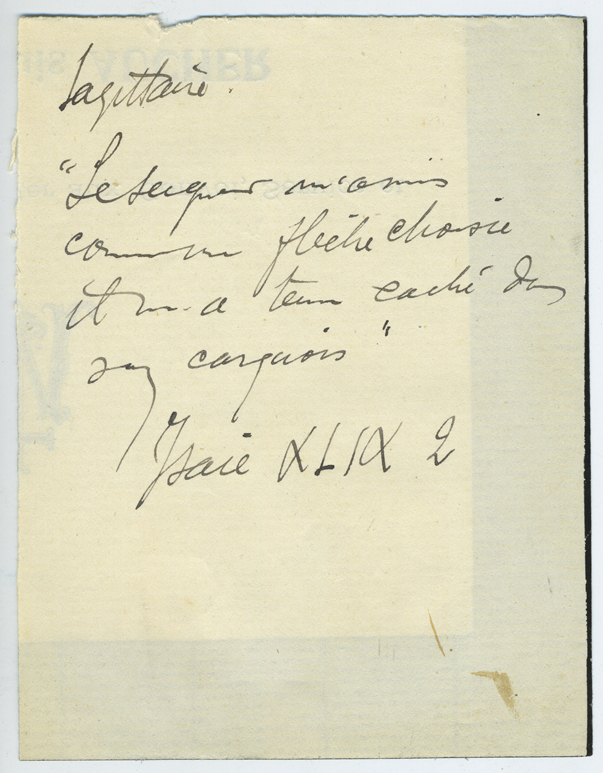 Sagittaire.
"Le Seigneur m'a mis
comme une flèche choisie
il m'a tenu caché dans
son carquois"
Isaie XLIX 2